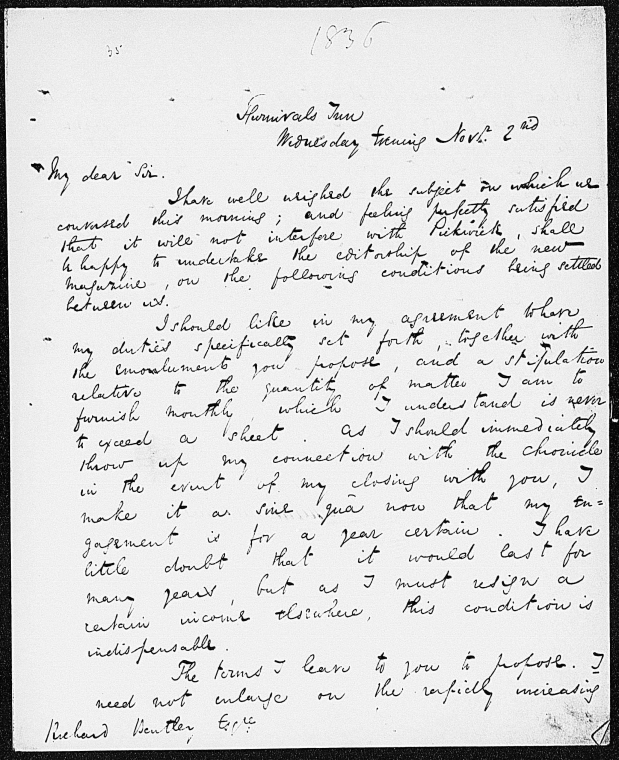 35
1836
Furnivals Inn
Wednesday Evening Novr. 2nd
My dear Sir.
I have well weighed the subject on which we
conversed this morning; and feeling perfectly satisfied
that it will not interfere with Pickwick, shall
be happy to undertake the editorship of the new
magazine, on the following conditions being settled
between us.
I should like in my agreement to have
my duties specifically set forth, together with
the emoluments you propose, and a stipulation
relative to the quantity of matter I am to
furnish monthly, which I understand is never
to exceed a sheet. As I should immediately
throw up my connection with the Chronicle
in the event of my closing with you, I
make it a sine quâ non that my en=
gagement is for a year certain. I have
little doubt that it would last for
many years, but as I must resign a
certain income elsewhere, this condition is
indispensable.
The terms I leave to you to propose. I
need not enlarge on the rapidly increasing
Richard Bentley Esqre